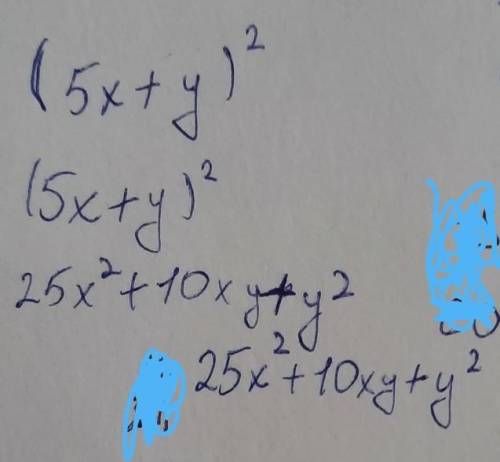 (5x+y)²
(5x+y)²
25x²+10xy+y²
25x²+10xy+y²